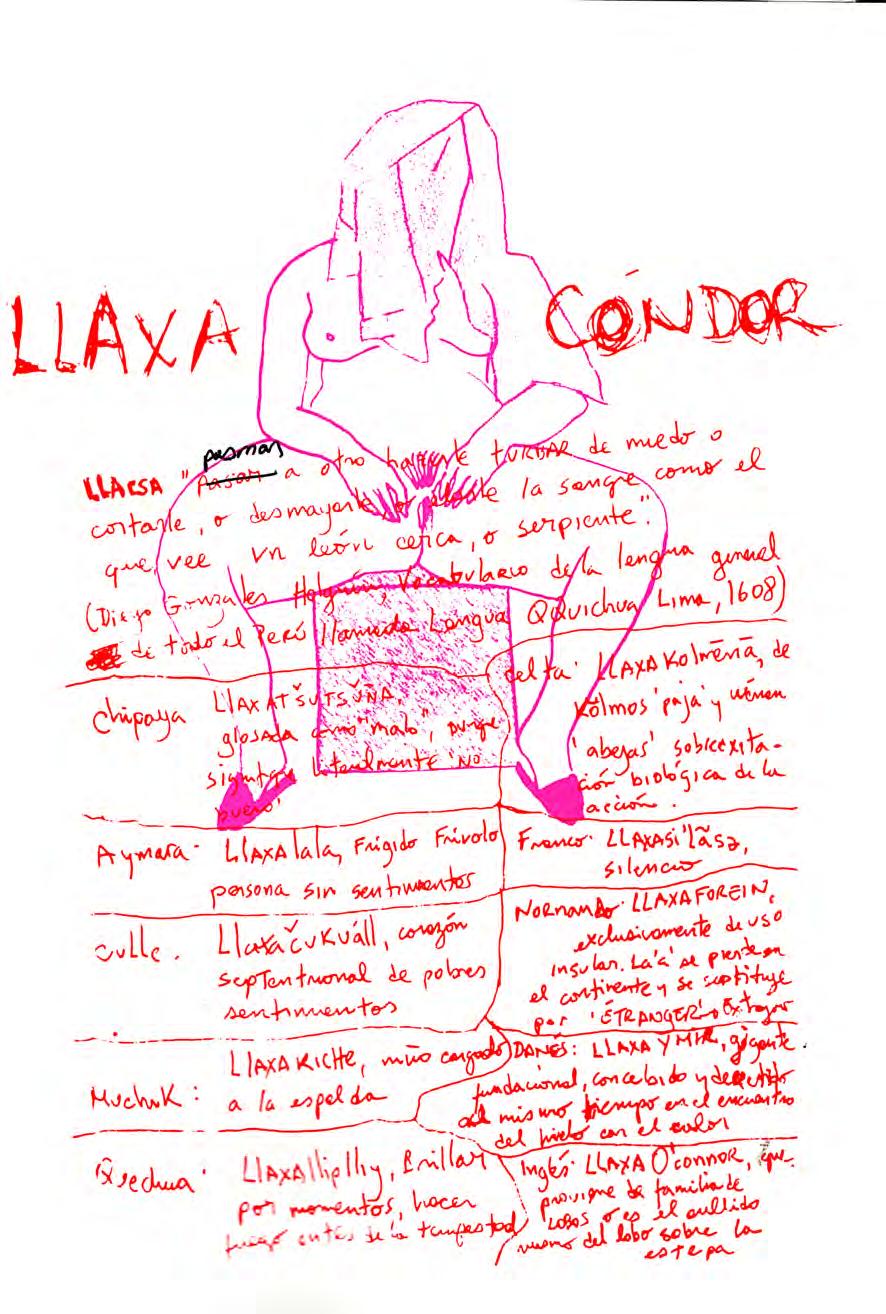 LLAXA CÓNDOR
pasmar
LLACSA "Pasar a otro hacerle TURBAR de miedo o
cortarle, o desmayarle, o elarle la sangre como el
que vee un león cerca, o serpiente."
(Diego Gonzales Holguin, Vocabulario de la lengua general
de todo el Perú llamada Lengua QQuichua Lima, 1608)
Chipaya LLAXATŠUTSUÑA,
glosada como "malo", porque
significa literalmente 'NO
bueno'
Aymara· LLAXAlala, Frígido Frívolo
persona sin sentimentos
culle. LlaxačuKuáll, corazón
septentrional de pobres
sentimientos
Muchik: LLAXAKICHE, niño cargado
a la espalda
LLAXAlliplliy, Brillar
por momentos, hacer
fuego antes de la tempestad
celta· LLAXAKolmēnā, de
Kōlmos 'paja' y
'abejas' sobreexita-
ción biológica de la
acción.
Franco· LLAXASi'lãsə,
silencio
NORMANDO· LLAXAFOREIN,
exclusivamente de uso
insular. La 'a' se pierde en
el continente y se sustituye
por 'ÉTRANGER'
DANÉS: LLAXA YMIR, gigante
fundacional, concebido y derretido
al mismo tiempo en el encuentro
del hielo con el calor
Inglés: LLAXA O'connor, que
proviene de familia de
LOBOS o es el aullido
mismo del lobo sobre la
estepa